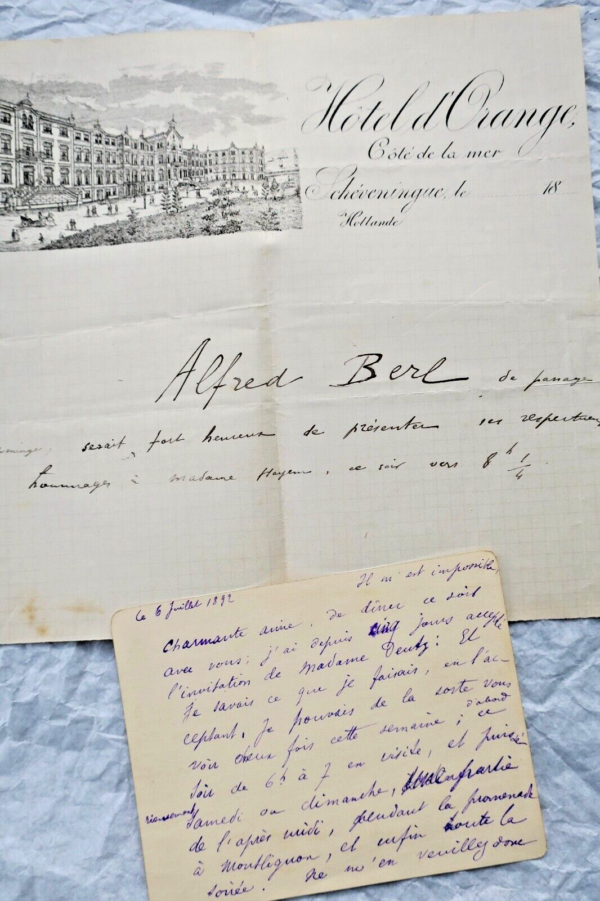 Hôtel d'Orange,
Côté de la mer
Schéveningue, le 18
Hollande
Alfred Berl de passage
serait fort heureux de présenter ses respectueux
hommages à Madame Hayem, ce soir vers 8 h 1/4
le 6 Juillet 1892
Il m'est impossible,
Charmante amie, de dîner ce soir
avec vous: j'ai depuis cinq jours accepté
l'invitation de Madame Deutz: Et
Je savais ce que je faisais, en l'ac-
ceptant, Je pouvais de la sorte vous
voir deux fois cette semaine; ce
soir de 6h à 7 en visite, d'abord et puis
Samedi ou dimanche, partie
de l'après midi, pendant la promenade
à Montlignon, et enfin toute la
soirée! Ne m'en veuillez donc